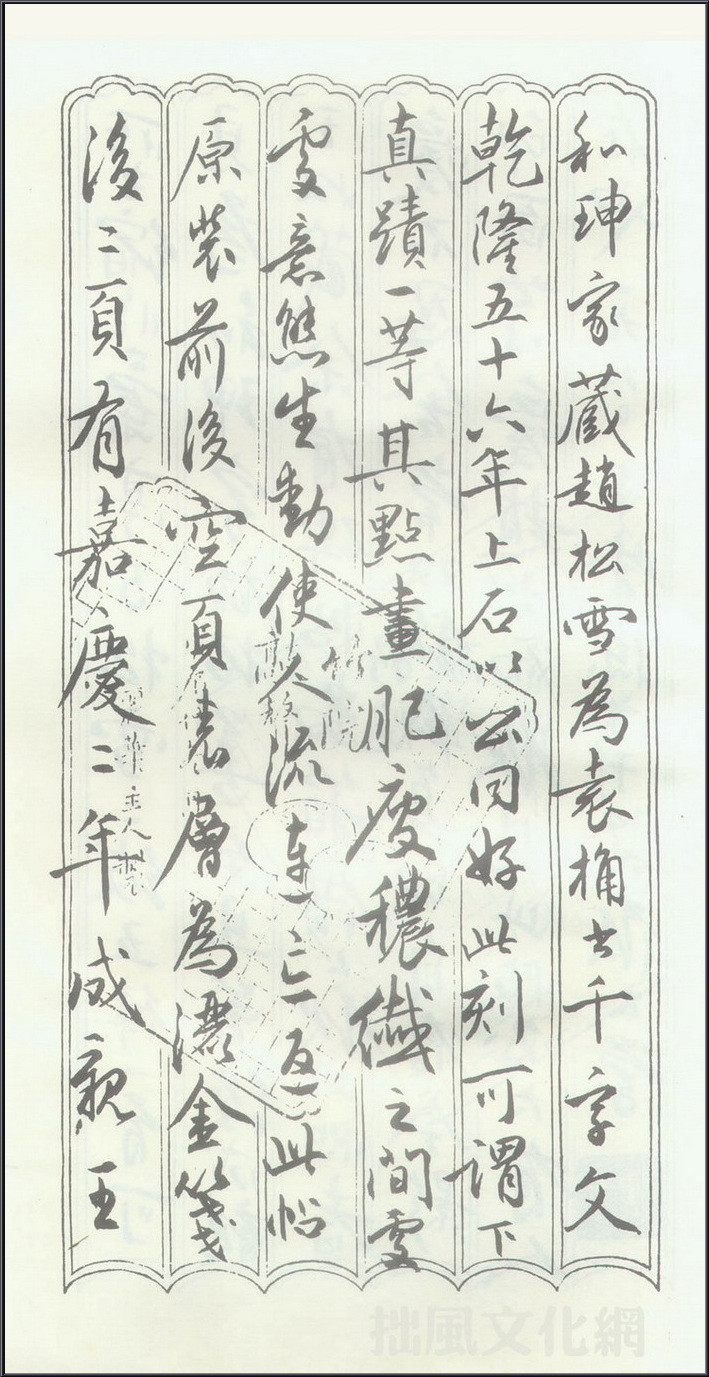 和珅家藏趙松雪為袁桷書千字文
乾隆五十六年上石以公同好此刻可謂下
真蹟一等其點畫肥瘦穠纖之間處
處意態生動使人流連忘返此帖
原裝前後空頁表層為灑金箋
後二頁有嘉慶二年成親王
主人
拙風文化網